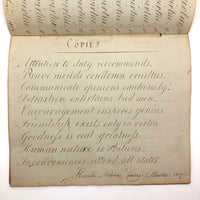 COPIES.
Attention to duty recommends.
Brave minds condemn cruelties.
Communicate opinions cautiously.
Detraction entertains bad men.
Encouragement inspires genius.
Friendship exists only in virtue.
Goodness is real greatness.
Human nature is
Inconveniences attend all states